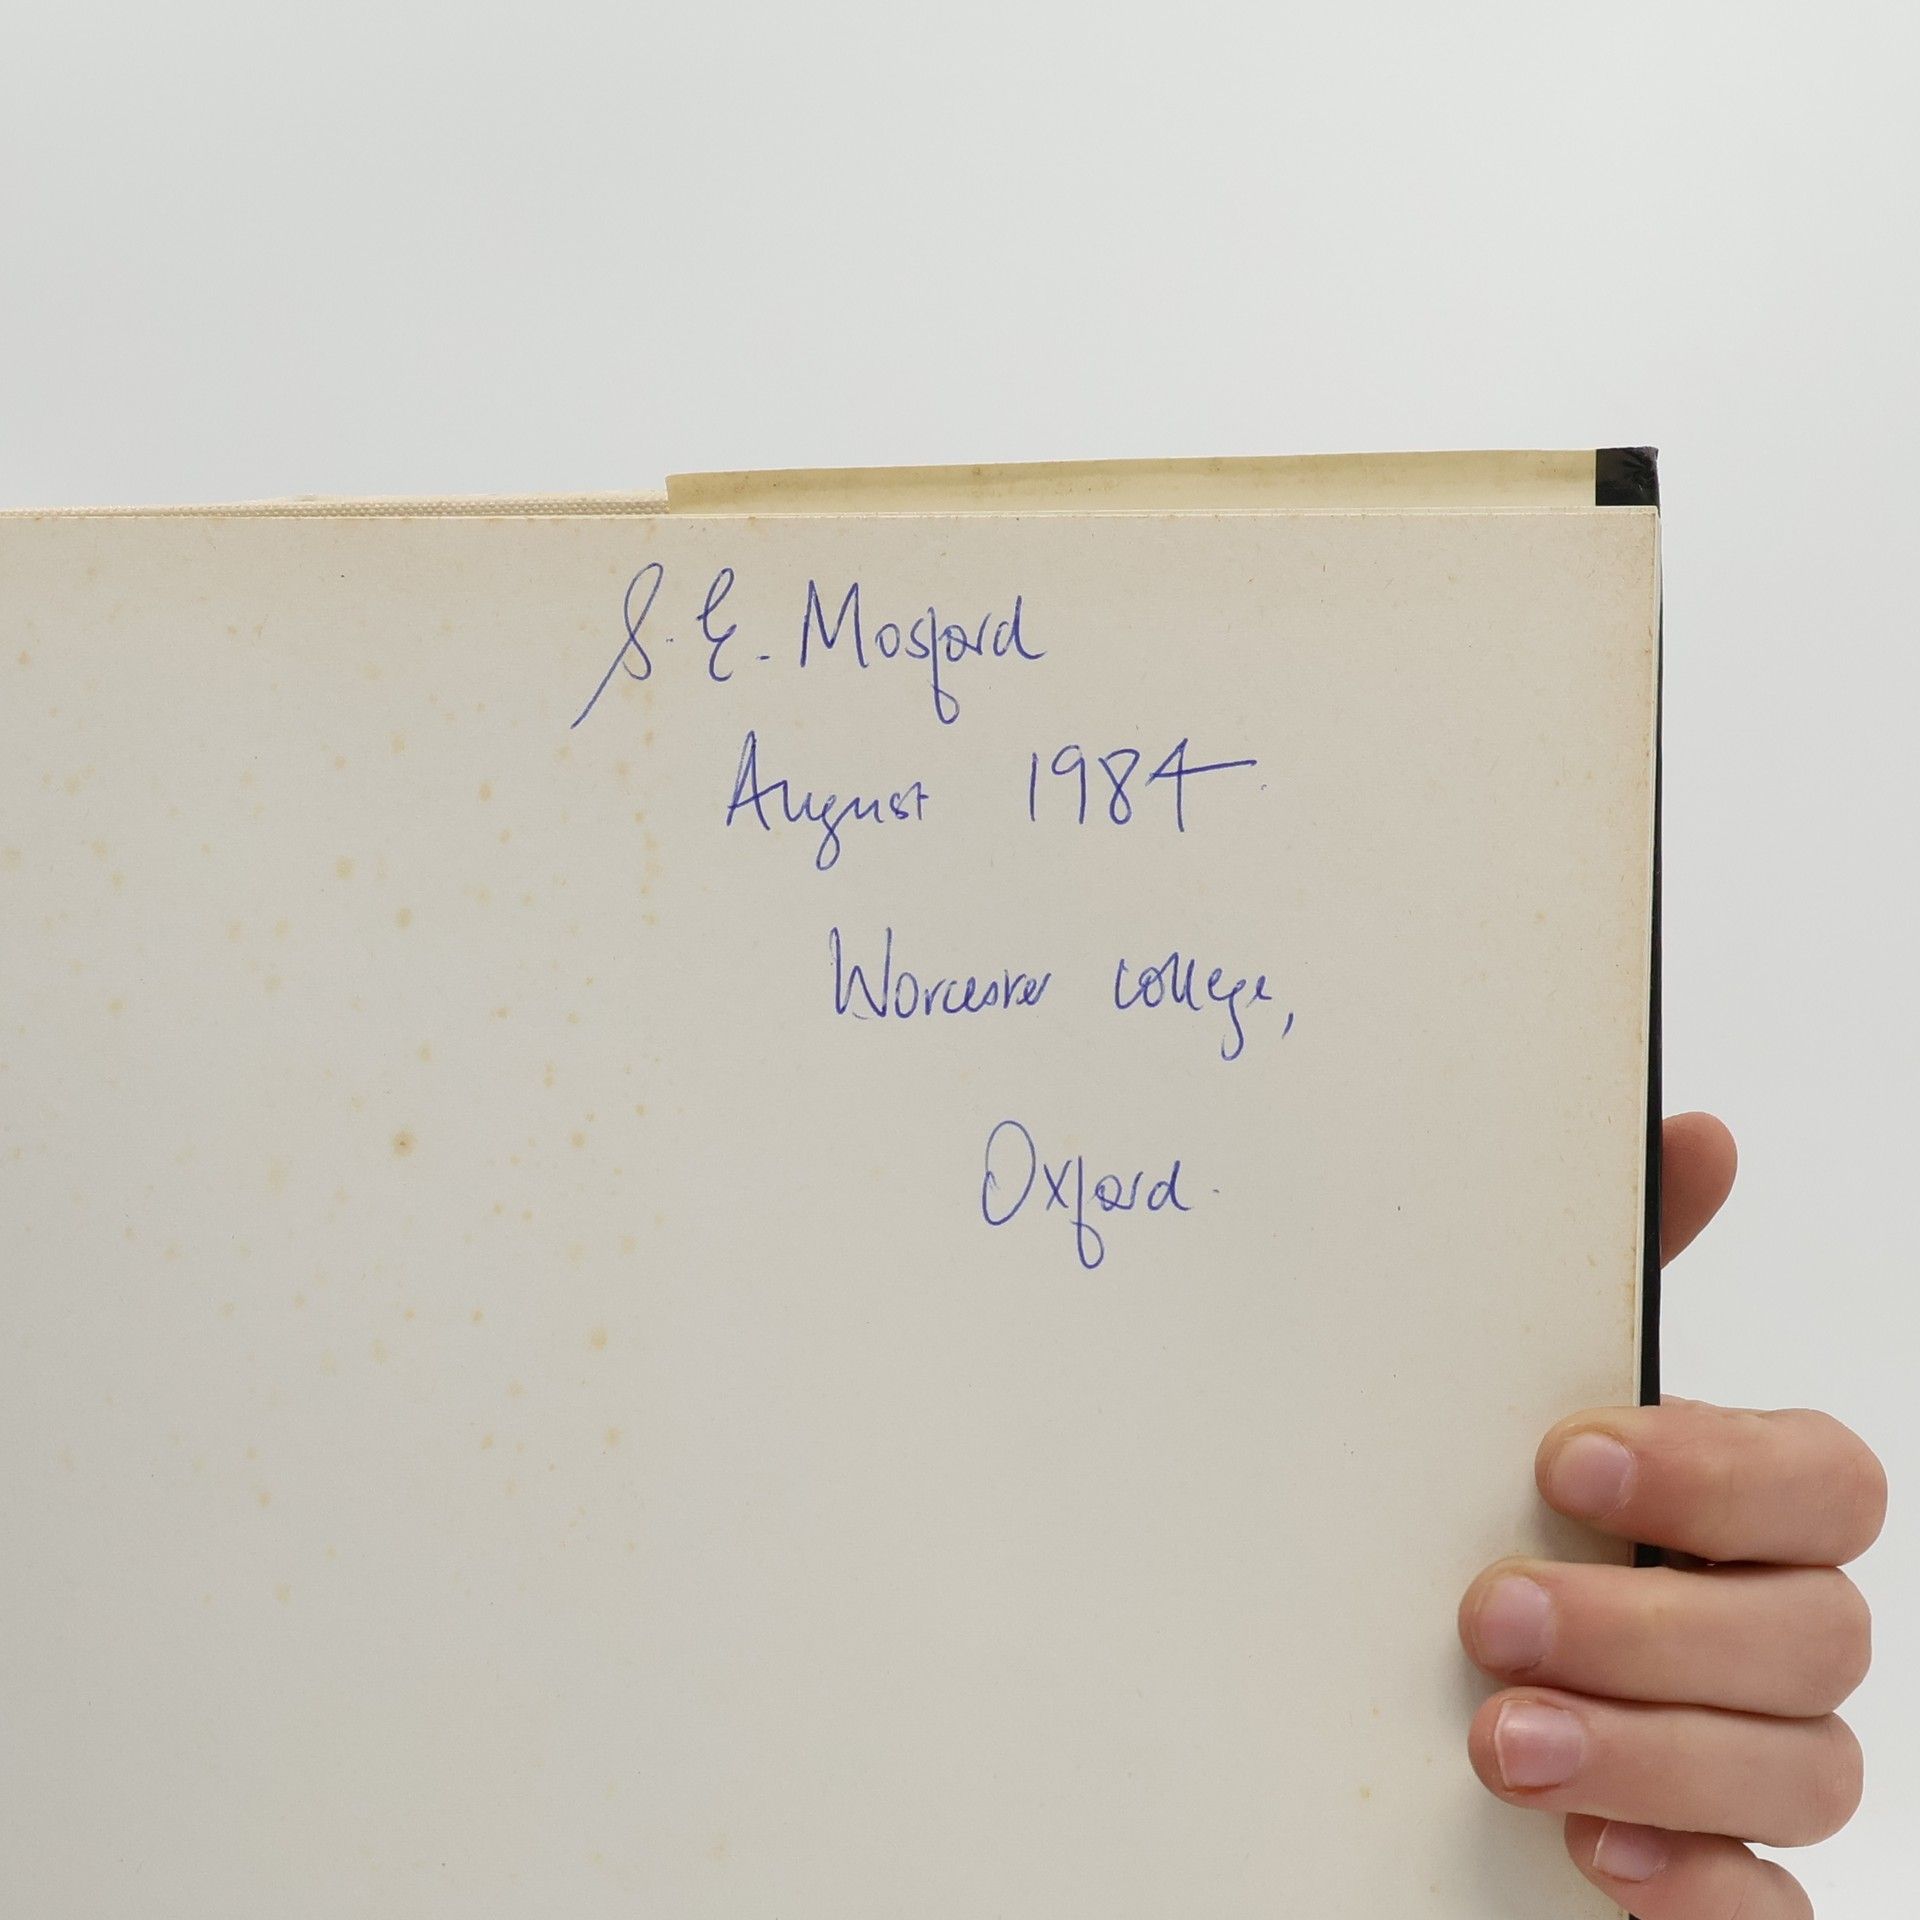 S. E. Mosford
August 1984.
Worcester College,
Oxford.